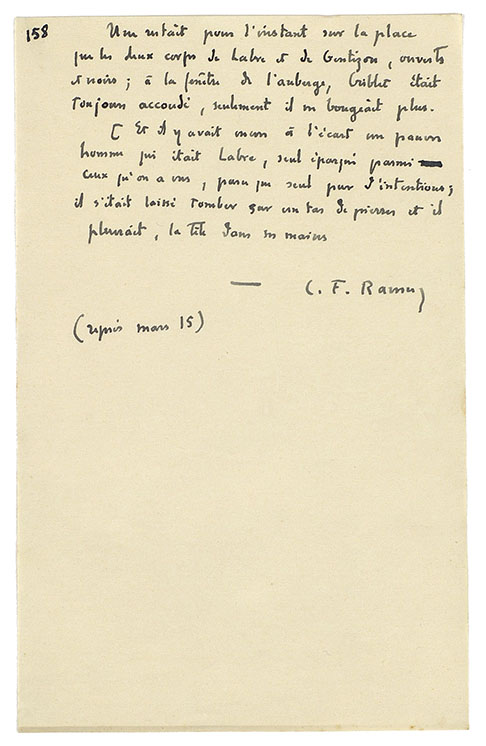 158
Il ne restait pour l'instant sur la place
que les deux corps de Labre et de Gentizon, ouverts
et noirs ; à la fenêtre de l'auberge, Criblet était
toujours accoudé, seulement il ne bougeait plus.
[ Et il y avait encore à l'écart un pauvre
homme qui était Labre, seul épargné parmi
ceux qu'on a vus, parce que seul pur d'intentions ;
il s'était laissé tomber sur un tas de pierres et il
pleurait, la tête dans ses mains
—
C. F. Ramuz
(repris mars 15)